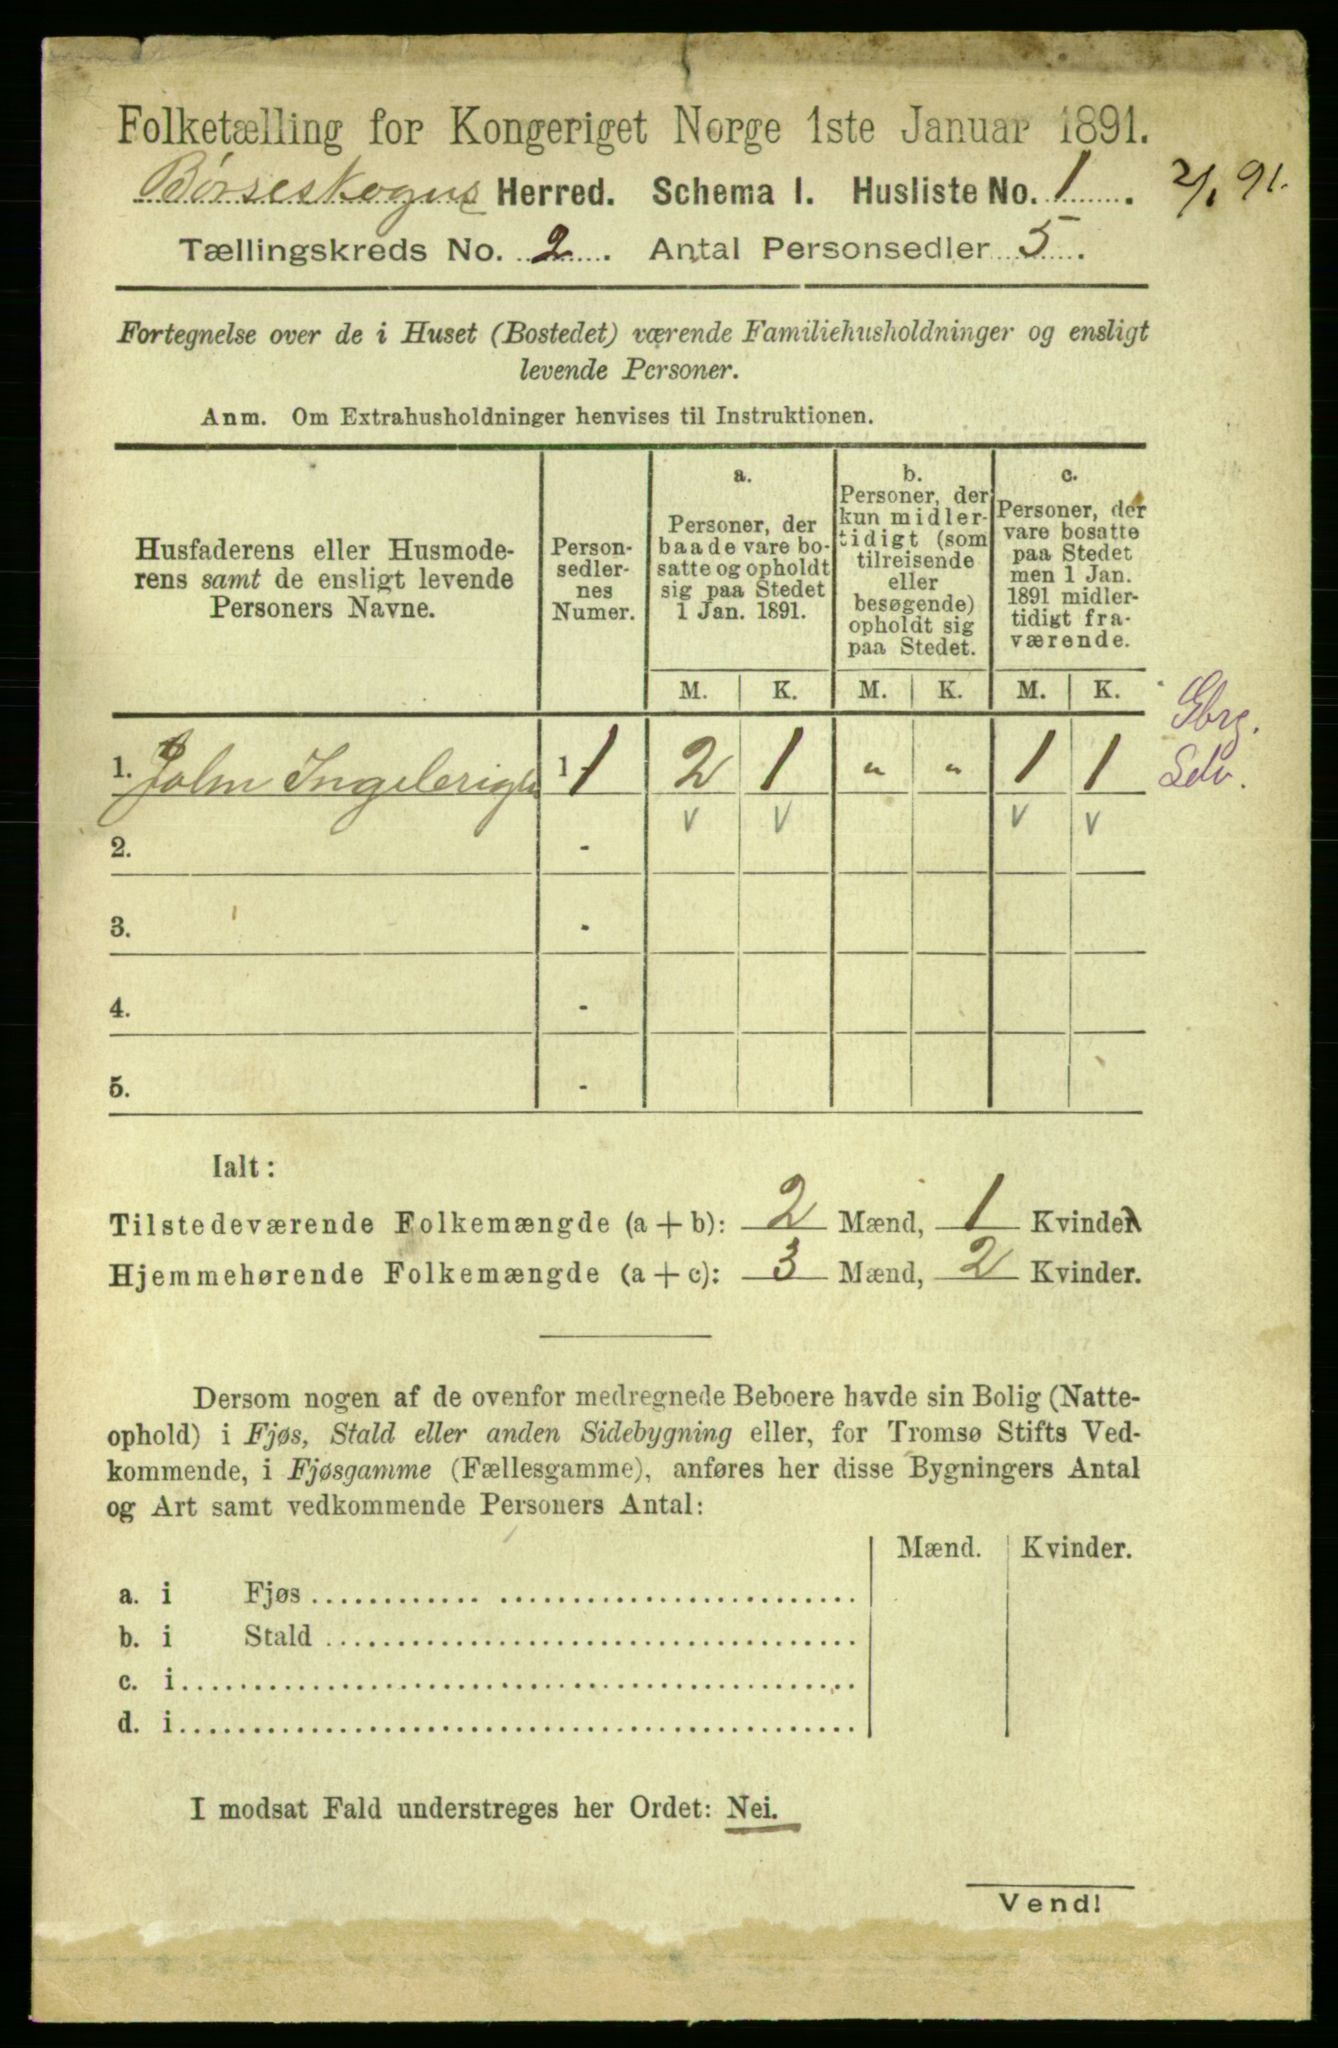 Folketælling for Kongeriget Norge 1ste Januar 1891.
Børseskogns Herred. Schema 1. Husliste No. 1. 2/1 91.
Tællingskreds No. 2. Antal Personsedler 5.
Fortegnelse over de i Huset (Bostedet) værende Familiehusholdninger og ensligt
levende Personer.
Anm. Om Extrahusholdninger henvises til Instruktionen.
Husfaderens eller Husmode-
rens samt de ensligt levende
Personers Navne.
Person-
sedler-
nes
Numer.
a.
Personer, der
baade vare bo-
satte og opholdt
sig paa Stedet
1 Jan. 1891.
b.
Personer, der
kun midler-
tidigt (som
tilreisende
eller
besøgende)
opholdt sig
paa Stedet.
c.
Personer, der
vare bosatte
paa Stedet
men 1 Jan.
1891 midler-
tidigt fra-
værende.
M. K. M. K. M. K.
Gbrg.
Selv.
1. John Ingebrigts 1 - 1 2 1 " " 1 1
v v v v
2. -
3. -
4. -
5. -
Ialt:
Tilstedeværende Folkemængde (a + b): 2 Mænd, 1 Kvinde
Hjemmehørende Folkemængde (a + c): 3 Mænd, 2 Kvinder.
Dersom nogen af de ovenfor medregnede Beboere havde sin Bolig (Natte-
ophold) i Fjøs, Stald eller anden Sidebygning eller, for Tromsø Stifts Ved-
kommende, i Fjøsgamme (Fællesgamme), anføres her disse Bygningers Antal
og Art samt vedkommende Personers Antal:
Mænd. Kvinder.
a. i Fjøs
b. i Stald
c. i
d. i
I modsat Fald understreges her Ordet: Nei.
Vend!